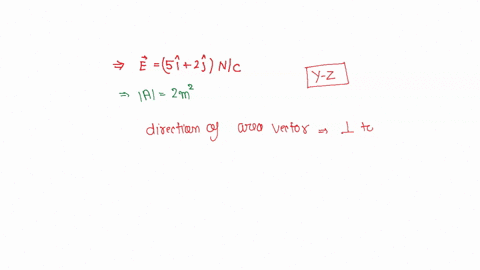 ⇒ E⃗ = (5î + 2ĵ) N/C
Y-Z
⇒ |A| = 2m²
direction of area vector ⇒ ⊥ to